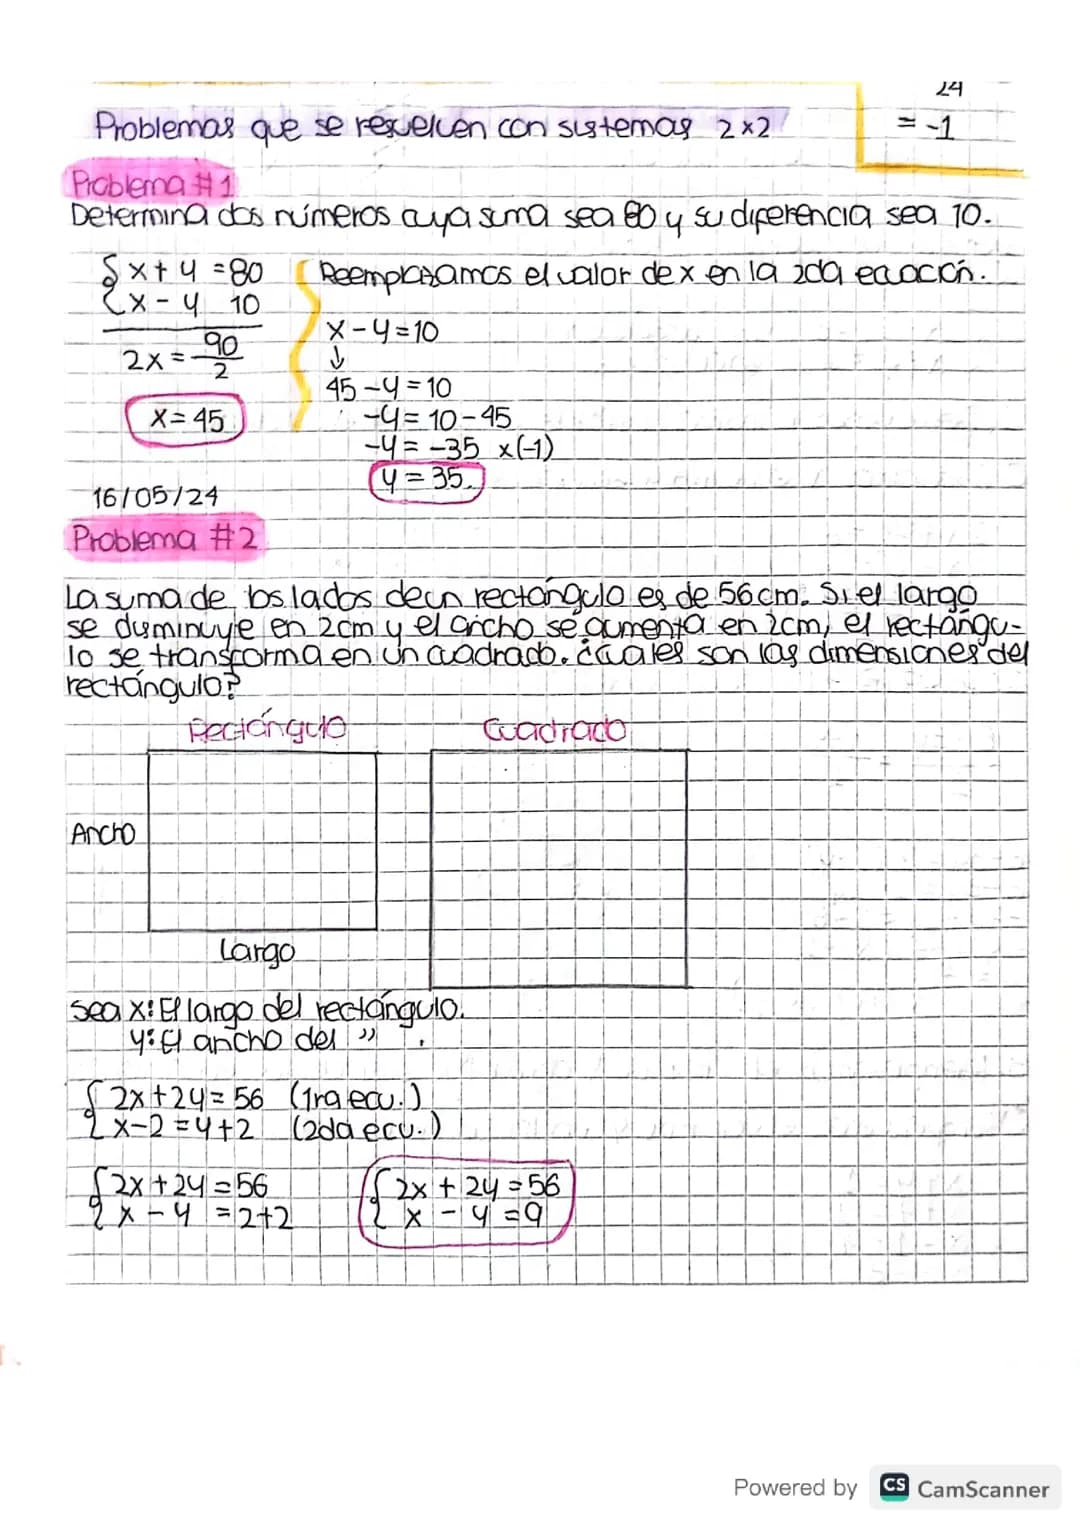 24
= -1
Problemas que se resuelven con sistemas 2x2
Problema #1
Determina dos números cuya suma sea 80 y su diferencia sea 10.
{ x + y = 80
x - y 10
2x = 90
2
x = 45
Reemplazamos el valor de x en la 2da ecuación.
x - y = 10
↓
45 - y = 10
-y = 10 - 45
-y = -35 x(-1)
y = 35.
16/05/24
Problema #2
La suma de los lados de un rectángulo es de 56cm. Si el largo
se disminuye en 2cm y el ancho se aumenta en 2cm, el rectángu-
lo se transforma en un cuadrado. ¿Cuales son las dimensiones del
rectángulo?
Rectángulo
Cuadrado
Ancho
Largo
Sea x: El largo del rectángulo.
y: El ancho del " .
{ 2x + 2y = 56 (1ra ecu.)
x - 2 = y + 2 (2da ecu.)
{ 2x + 2y = 56
x - y = 2+2
{ 2x + 2y = 56
x - y = 9
Powered by CS CamScanner